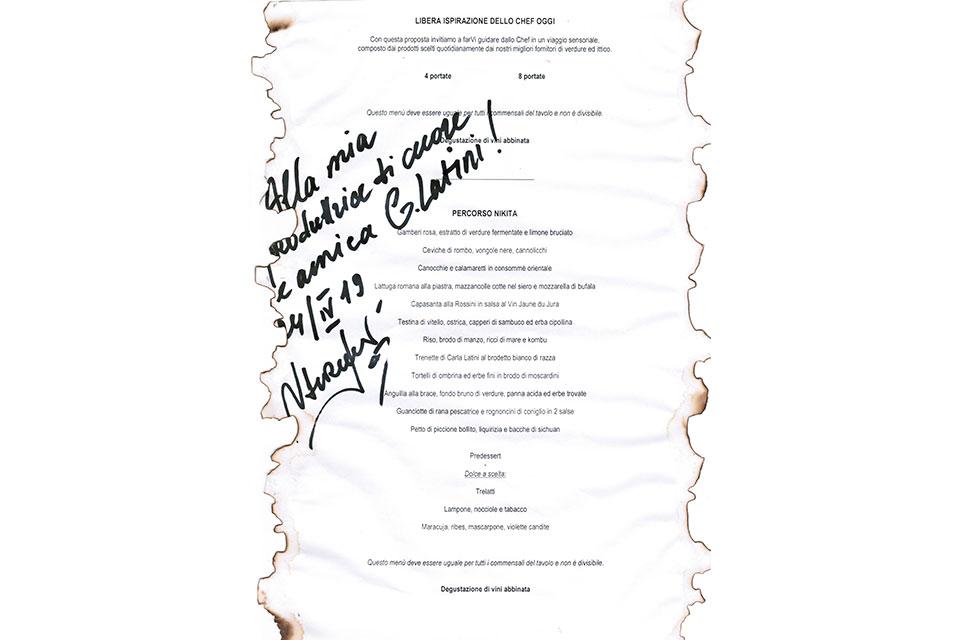 LIBERA ISPIRAZIONE DELLO CHEF OGGI
Con questa proposta invitiamo a farVi guidare dallo Chef in un viaggio sensoriale,
composto dai prodotti scelti quotidianamente dai nostri migliori fornitori di verdure ed ittico.
4 portate 8 portate
Questo menù deve essere uguale per tutti i commensali del tavolo e non è divisibile.
Degustazione di vini abbinata
Alla mia
produttrice di cuore
e amica G. Latini!
24/IV 19
PERCORSO NIKITA
Gamberi rosa, estratto di verdure fermentate e limone bruciato
Ceviche di rombo, vongole nere, cannolicchi
Canocchie e calamaretti in consommè orientale
Lattuga romana alla piastra, mazzancolle cotte nel siero e mozzarella di bufala
Capasanta alla Rossini in salsa al Vin Jaune du Jura
Testina di vitello, ostrica, capperi di sambuco ed erba cipollina
Riso, brodo di manzo, ricci di mare e kombu
Trenette di Carla Latini al brodetto bianco di razza
Tortelli di ombrina ed erbe fini in brodo di moscardini
Anguilla alla brace, fondo bruno di verdure, panna acida ed erbe trovate
Guanciotte di rana pescatrice e rognoncini di coniglio in 2 salse
Petto di piccione bollito, liquirizia e bacche di sichuan
Predessert
Dolce a scelta:
Trelatti
Lampone, nocciole e tabacco
Maracuja, ribes, mascarpone, violette candite
Questo menù deve essere uguale per tutti i commensali del tavolo e non è divisibile.
Degustazione di vini abbinata